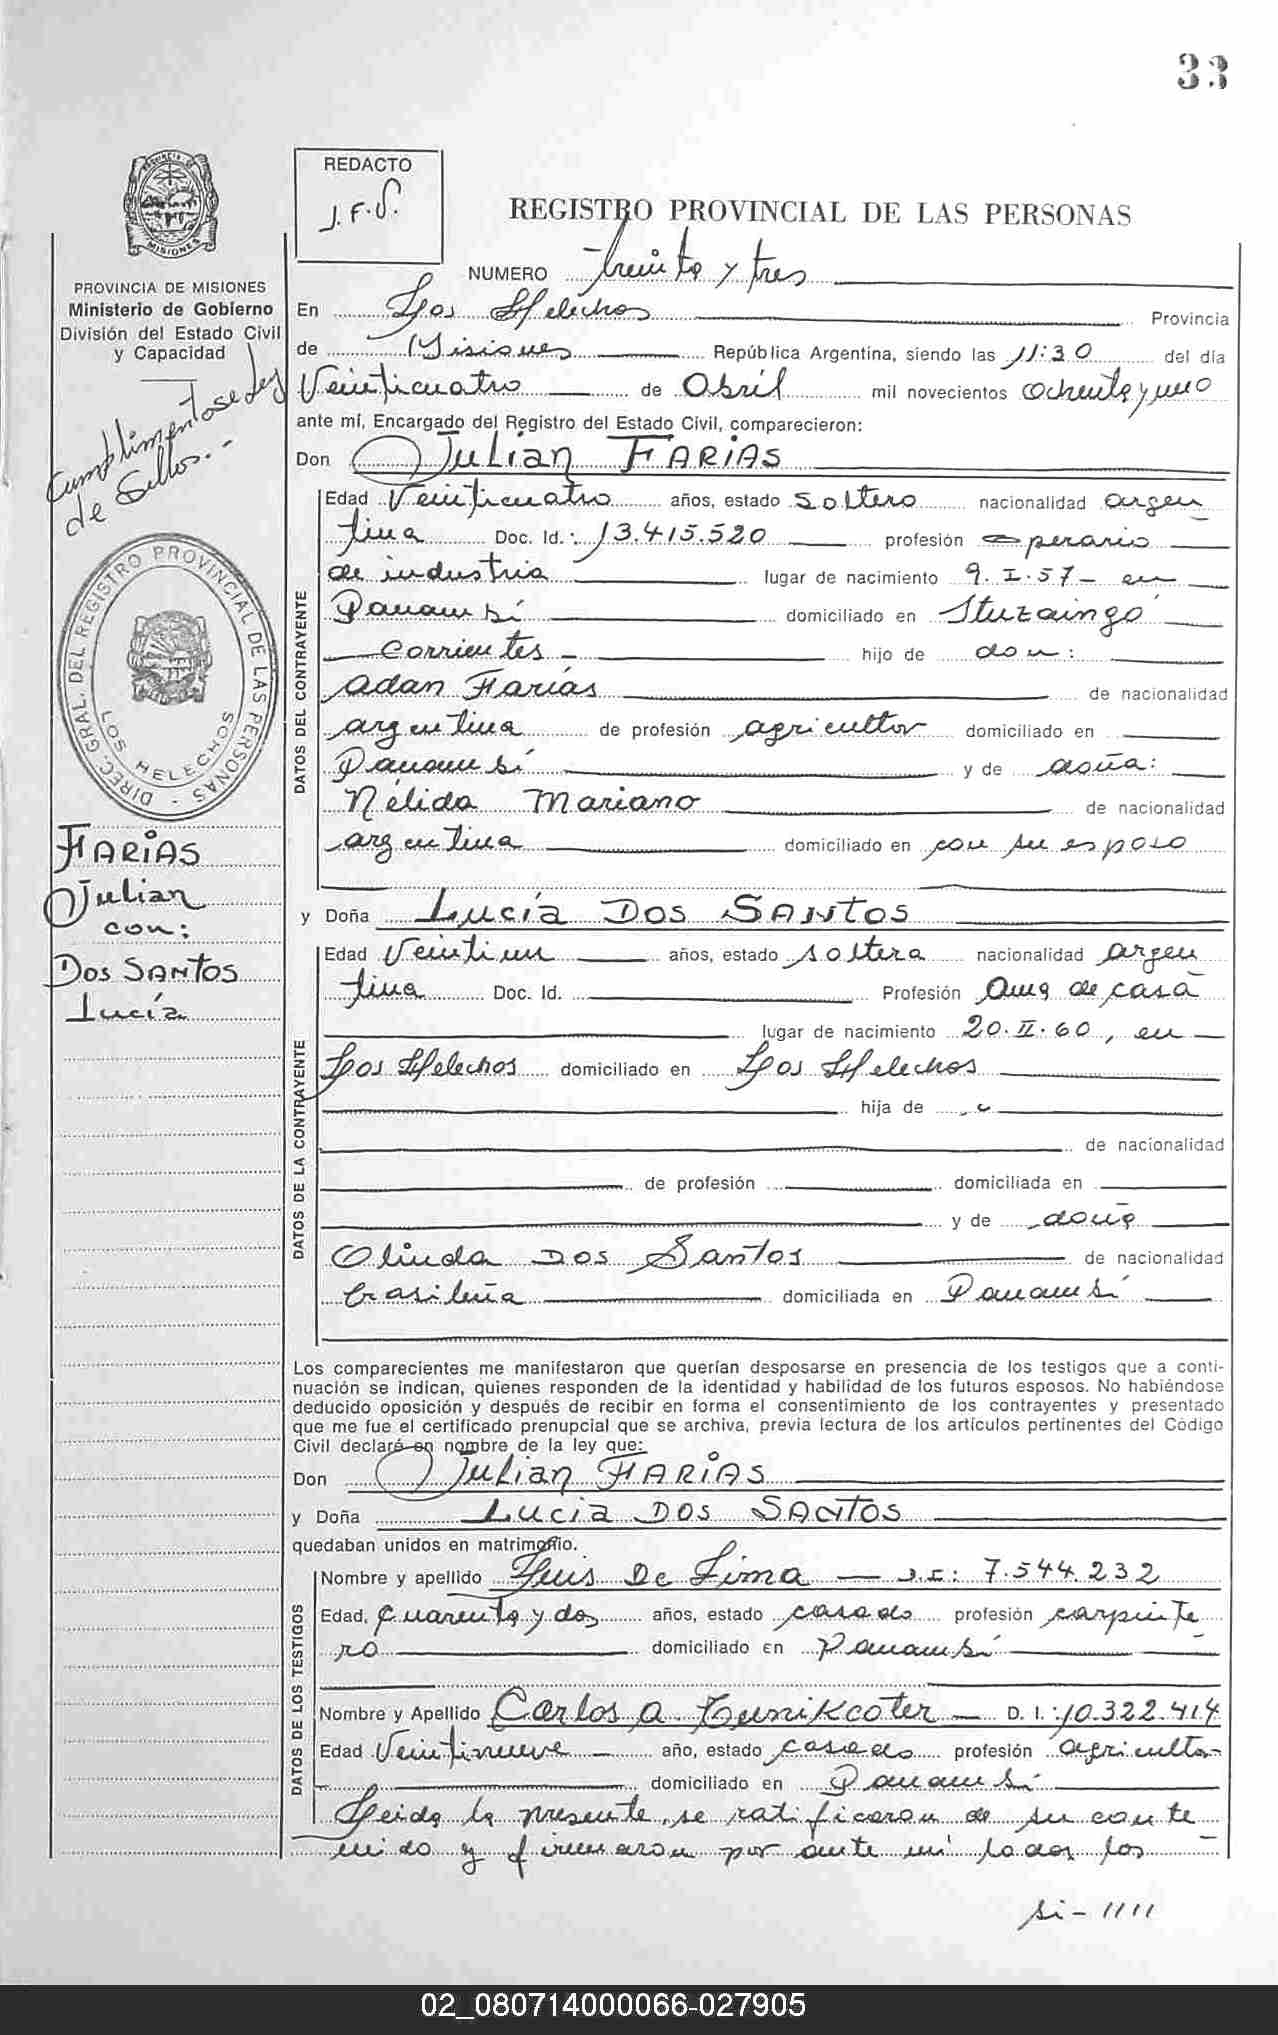 33
REDACTO
J.F.S.
REGISTRO PROVINCIAL DE LAS PERSONAS
PROVINCIA DE MISIONES
Ministerio de Gobierno
División del Estado Civil
y Capacidad
Cumplimentose Ley
de Sellos.-
DIREC. GRAL. DEL REGISTRO PROVINCIAL DE LAS PERSONAS -
LOS HELECHOS
FARIAS
Julian
con:
Dos SANTOS
Lucía
NUMERO treinta y tres
En Los Helechos Provincia
de Misiones República Argentina, siendo las 11:30 del día
Veinticuatro de Abril mil novecientos Ochenta y uno
ante mí, Encargado del Registro del Estado Civil, comparecieron:
Don Julian FARIAS
DATOS DEL CONTRAYENTE
Edad Veinticuatro años, estado soltero nacionalidad argen
tina Doc. Id. 13.415.520 profesión operario
de industria lugar de nacimiento 9.I.57- en
Panambí domiciliado en Ituzaingó
Corrientes - hijo de don:
Adan Farias de nacionalidad
argentina de profesión agricultor domiciliado en
Panambí y de doña:
Nélida Mariano de nacionalidad
argentina domiciliado en con su esposo
y Doña Lucía Dos SANTOS
DATOS DE LA CONTRAYENTE
Edad Veintiun años, estado soltera nacionalidad argen
tina Doc. Id. Profesión Ama de casa
lugar de nacimiento 20.II.60, en
Los Helechos domiciliado en Los Helechos
hija de
de nacionalidad
de profesión domiciliada en
y de doña
Olinda Dos Santos de nacionalidad
brasileña domiciliada en Panambí
Los comparecientes me manifestaron que querían desposarse en presencia de los testigos que a conti-
nuación se indican, quienes responden de la identidad y habilidad de los futuros esposos. No habiéndose
deducido oposición y después de recibir en forma el consentimiento de los contrayentes y presentado
que me fue el certificado prenupcial que se archiva, previa lectura de los artículos pertinentes del Código
Civil declaré en nombre de la ley que:
Don Julian FARIAS
y Doña Lucia Dos SANTOS
quedaban unidos en matrimonio.
DATOS DE LOS TESTIGOS
Nombre y apellido Luis De Lima D.I.: 7.544.232
Edad, Cuarenta y dos años, estado casado profesión carpinte
ro domiciliado en Panambí
Nombre y Apellido Carlos A. D. I.: 10.322.414
Edad Veintinueve año, estado casado profesión agricultor
domiciliado en Panambí
Leida la presente, se ratificaron de su conte
nido y firmaron por ante mi todos los
si- ////
02_080714000066-027905